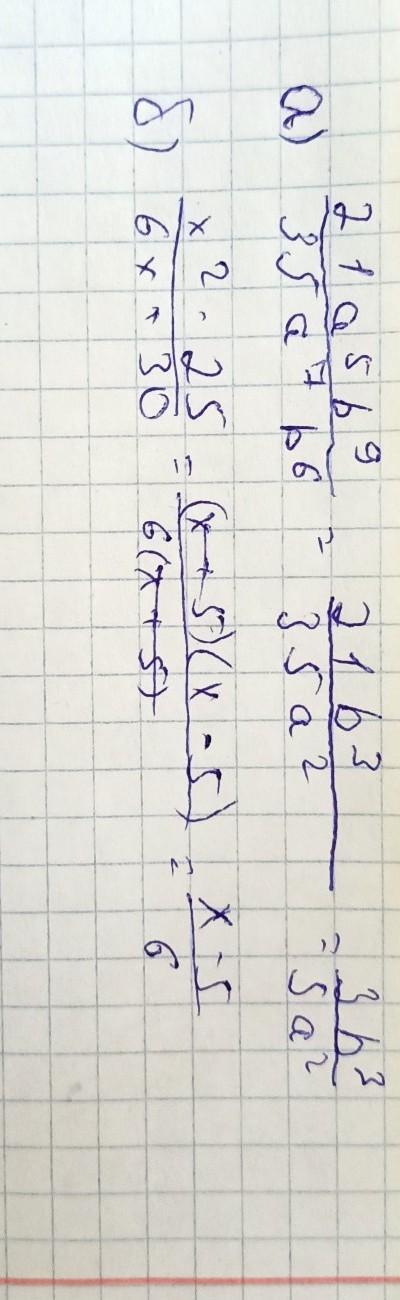 а) 21a⁵b⁹/35a⁷b⁶ = 21b³/35a² = 3b³/5a²
б) x²-25/6x+30 = (x+5)(x-5)/6(x+5) = x-5/6